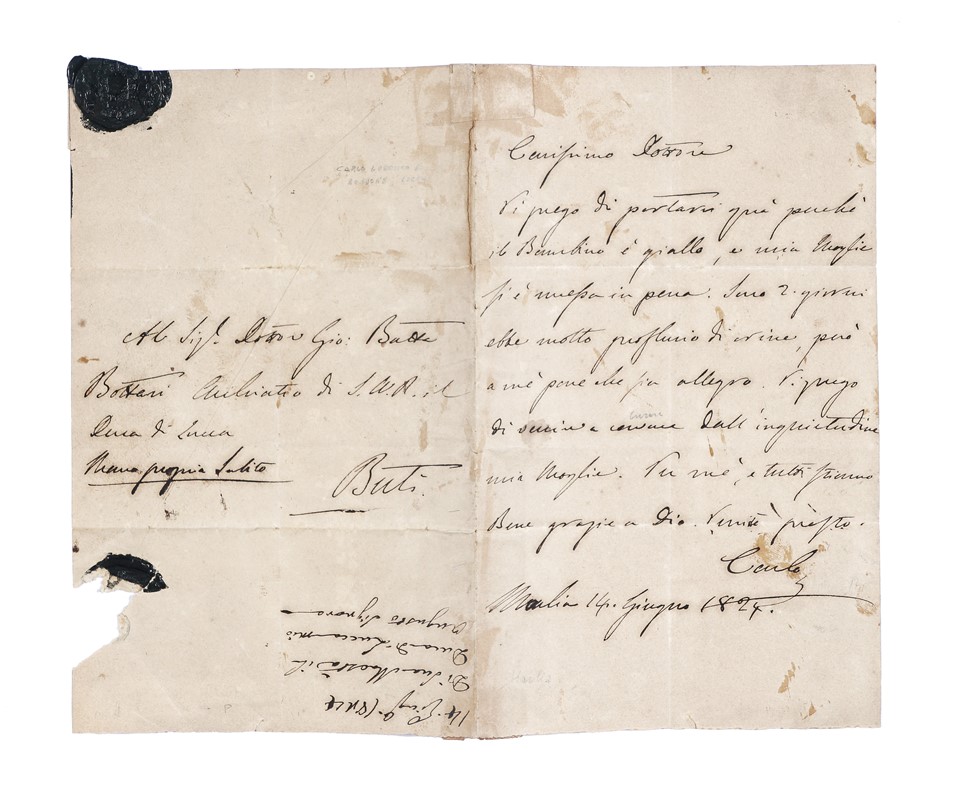 Al Sig.r Dottor Gio: Batta
Bottari Archiatro di S.A.R. il
Duca di Lucca
Mano propria Subito
Buti.
14. Giug.o 1824
Di Sua Maestà il
Duca di Lucca mio
Augusto Signore
Carissimo Dottore
Vi prego di portarvi quà perchè
il Bambino è giallo, e mia Moglie
si è messa in pena. Sono 2. giorni
ebbe molto profluvio di orine, però
a mè pare che sia allegro. Vi prego
di venire a curare dall'inquietudine
mia Moglie. Io mè, e tutti stiamo
Bene grazie a Dio. Venite presto.
Carlo
Marlia 14. Giugno 1824.